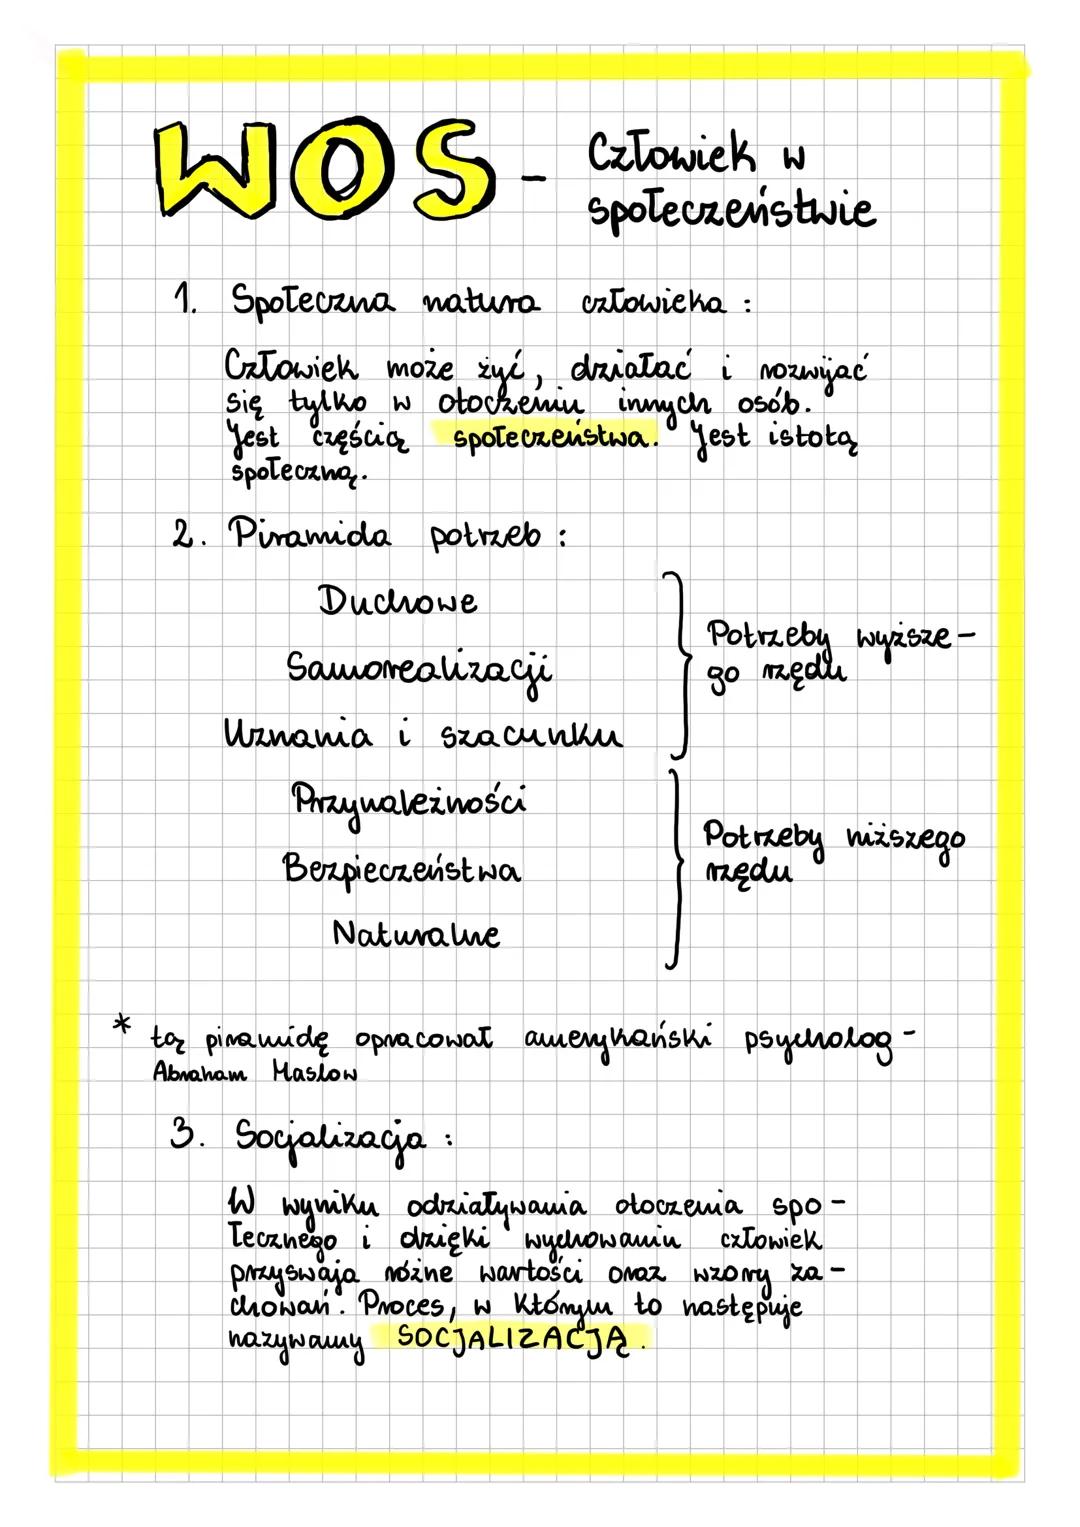 WOS - Człowiek w
społeczeństwie
1. Społeczna natura człowieka :
Człowiek może żyć, działać i rozwijać
się tylko w otoczeniu innych osób.
Jest częścią społeczeństwa. Jest istotą
społeczną.
2. Piramida potrzeb :
Duchowe
Samorealizacji
Uznania i szacunku
Potrzeby wyższe-
go rzędu
Przynależności
Bezpieczeństwa
Naturalne
Potrzeby niższego
rzędu
* tą piramidę opracował amerykański psycholog -
Abraham Maslow
3. Socjalizacja :
W wyniku odziaływania otoczenia spo-
łecznego i dzięki wychowaniu człowiek
przyswaja różne wartości oraz wzory za-
chowań. Proces, w którym to następuje
nazywamy SOCJALIZACJĄ.